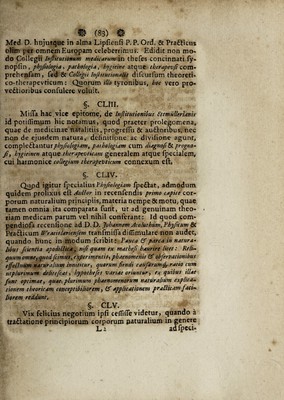 (83)
Med D. hujusque in alma Lipsiensi P. P. Ord. & Practicus
olim per omnem Europam celeberrimus. Edidit non mo-
do Collegii Institutionum medicarum in theses concinnati sy-
nopsin, physiologia, pathologia, hygieine atque therapevsi com-
prehensam, sed & Collegii Institutionalis discursum theoreti-
co-therapevticum: Quorum illa tyronibus, hoc vero pro-
vectioribus consulere voluit.
§. CLIII.
Missa hac vice epitome, de Institutionibus Etmüllerianis
id potissimum hic notamus, quod praeter prolegomena,
quae de medicinae natalitiis, progressu & auctoribus, nec
non de ejusdem natura, definitione ac divisione agunt,
complectantur physiologiam, pathologiam cum diagnosi & progno-
si, hygieinen atque therapevticam generalem atque specialem,
cui harmonice collegium therapevticum connexum est.
§. CLIV.
Quod igitur specialius Physiologiam spectat, admodum
quidem prolixus est Autor in recensendis primo capite cor-
porum naturalium principiis, materia nempe & motu, quae
tamen omnia ita comparata sunt, ut ad genuinam theo-
riam medicam parum vel nihil conferant: Id quod com-
pendiosa recensione ad D. D. Johannem
Practicum Wratislaviensem transmissa dissimulare non audet,
quando hunc in modum scribit: Pauca & parca in natura-
libus scientia apodictica, nisi quam ex mathesi haurire licet: Reli-
quum omne, quod scimus, experimentis, phaenomenis & observationibus
physicalium naturalium innititur, quarum siquidem causarum, ratio cum
ut plurimum deficiat, hypotheses variae oriuntur, ex quibus illae
sunt optimae, quae plurimum phaenomenorum naturalium explica-
tionem theoricam conceptibiliorem, & applicationem practicam faci-
liorem reddunt.
§. CLV.
Vix felicius negotium ipsi cessisse videtur, quando a
tractatione principiorum corporum naturalium in genere
L 2 ad speci-